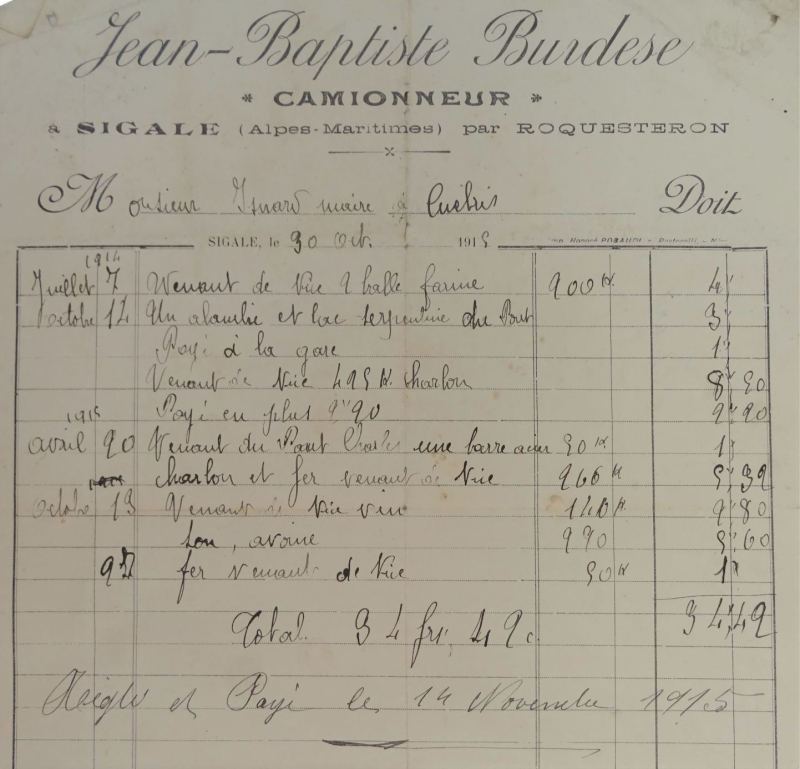 Jean-Baptiste Burdese
* CAMIONNEUR *
à SIGALE (Alpes-Maritimes) par ROQUESTERON
Monsieur Isnard maire à Cuebris Doit
SIGALE, le 30 Oct. 1915
1914
Juillet 7 Venant de Nice 2 balle farine 200 K. 4"
octobre 14 Un alambic et bac serpentine du Pont 3"
Payé à la gare 1"
Venant de Nice 425 K charbon 8" 50
1915 Payé en plus 2" 20 2" 20
avril 20 Venant du Pont Charles une barre acier 50 K. 1"
charbon et fer venant de Nice 266 K 5" 32
octobre 13 Venant de Nice vin 140 K 2" 80
son, avoine 5" 60
27 fer venant de Nice 50 K 1"
Total. 34 frs. 42 c 34,42
Réglé et Payé le 14 Novembre 1915